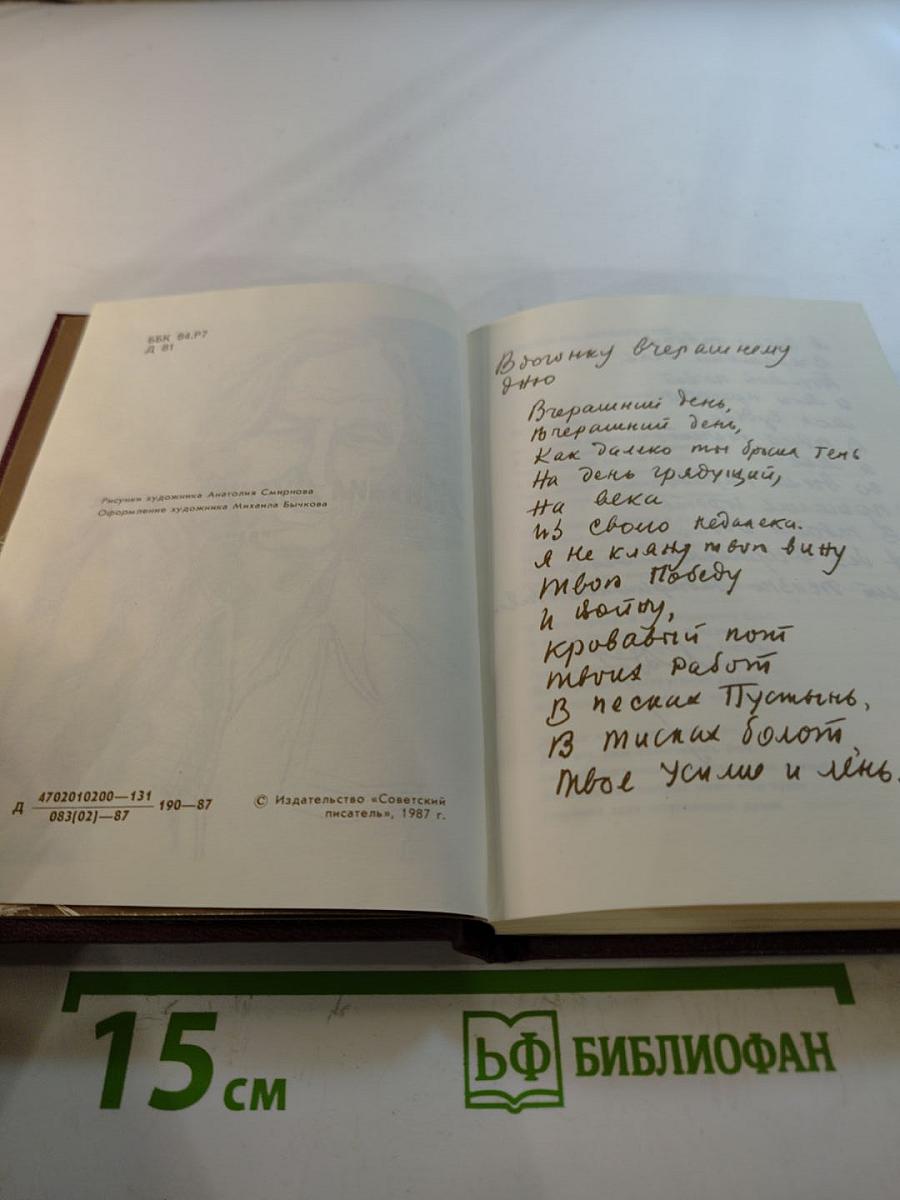 ББК 84.Р7
Д 81
Рисунки художника Анатолия Смирнова
Оформление художника Михаила Бычкова
Д 4702010200—131
083(02)—87
190—87
© Издательство «Советский
писатель», 1987 г.
Вдогонку вчерашнему
дню
Вчерашний день,
вчерашний день,
Как далеко ты бросил тень
На день грядущий,
на века
из своего недалека.
Я не кляну твою вину
Твою Победу
и войну,
кровавый пот
твоих работ
В песках Пустынь,
В тисках болот,
Твое усилие и лень.
15 см
БФ
БИБЛИОФАН